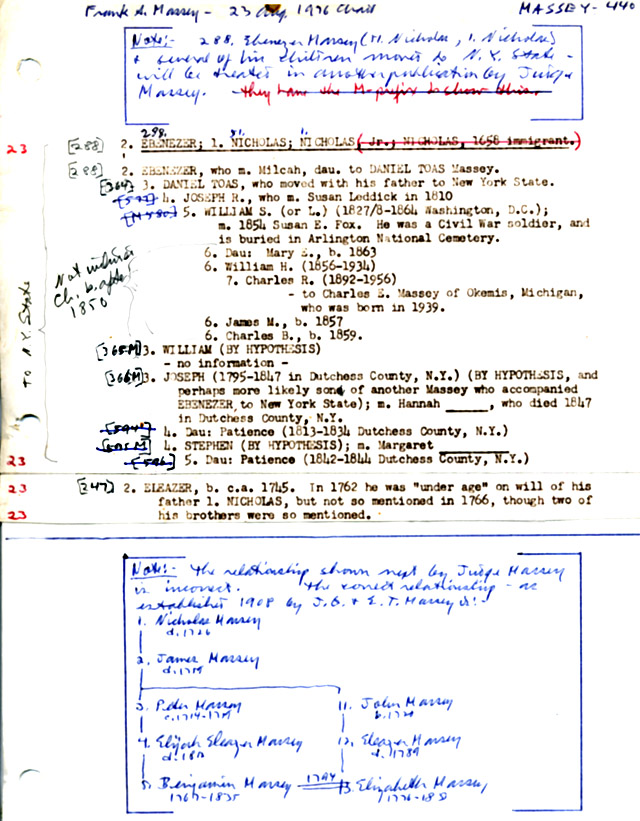 Frank A. Massey - 23 Aug. 1976 Chart
MASSEY-440
Note:- 288. Ebenezer Massey (H. Nicholas, 1. Nicholas)
& several of his children moved to N.Y. State -
will be treated in another publication by Judge
Massey. they have the M-prefix to show this.
288. 51.
23 [288] 2. EBENEZER; 1. NICHOLAS; NICHOLAS (Jr.; NICHOLAS, 1658 immigrant.)
[288] 2. EBENEZER, who m. Milcah, dau. to DANIEL TOAS Massey.
[364] 3. DANIEL TOAS, who moved with his father to New York State.
4. JOSEPH R., who m. Susan Leddick in 1810
5. WILLIAM S. (or L.) (1827/8-1864 Washington, D.C.);
m. 1854 Susan E. Fox. He was a Civil War soldier, and
is buried in Arlington National Cemetery.
6. Dau: Mary E., b. 1863
6. William H. (1856-1934)
7. Charles R. (1892-1956)
- to Charles E. Massey of Okemis, Michigan,
who was born in 1939.
6. James M., b. 1857
6. Charles B., b. 1859.
Ch. b. after
1850
TO N.Y. State
[365M] 3. WILLIAM (BY HYPOTHESIS)
- no information -
[366M] 3. JOSEPH (1795-1847 in Dutchess County, N.Y.) (BY HYPOTHESIS, and
perhaps more likely sons of another Massey who accompanied
EBENEZER, to New York State); m. Hannah _____, who died 1847
in Dutchess County, N.Y.
4. Dau: Patience (1813-1834 Dutchess County, N.Y.)
4. STEPHEN (BY HYPOTHESIS); m. Margaret _____
23 5. Dau: Patience (1842-1844 Dutchess County, N.Y.)
23 [247] 2. ELEAZER, b. c.a. 1745. In 1762 he was "under age" on will of his
father 1. NICHOLAS, but not so mentioned in 1766, though two of
23 his brothers were so mentioned.
Note:- The relationship shown next by Judge Massey
is incorrect. The correct relationship - as
established 1908 by J.G. & E.T. Massey is:-
1. Nicholas Massey
2. James Massey
3. Peter Massey 11. John Massey
4. Elijah Eleazer Massey 12. Eleazer Massey
d. 1789
5. Benjamin Massey 1794 13. Elizabeth Massey
1767-1835